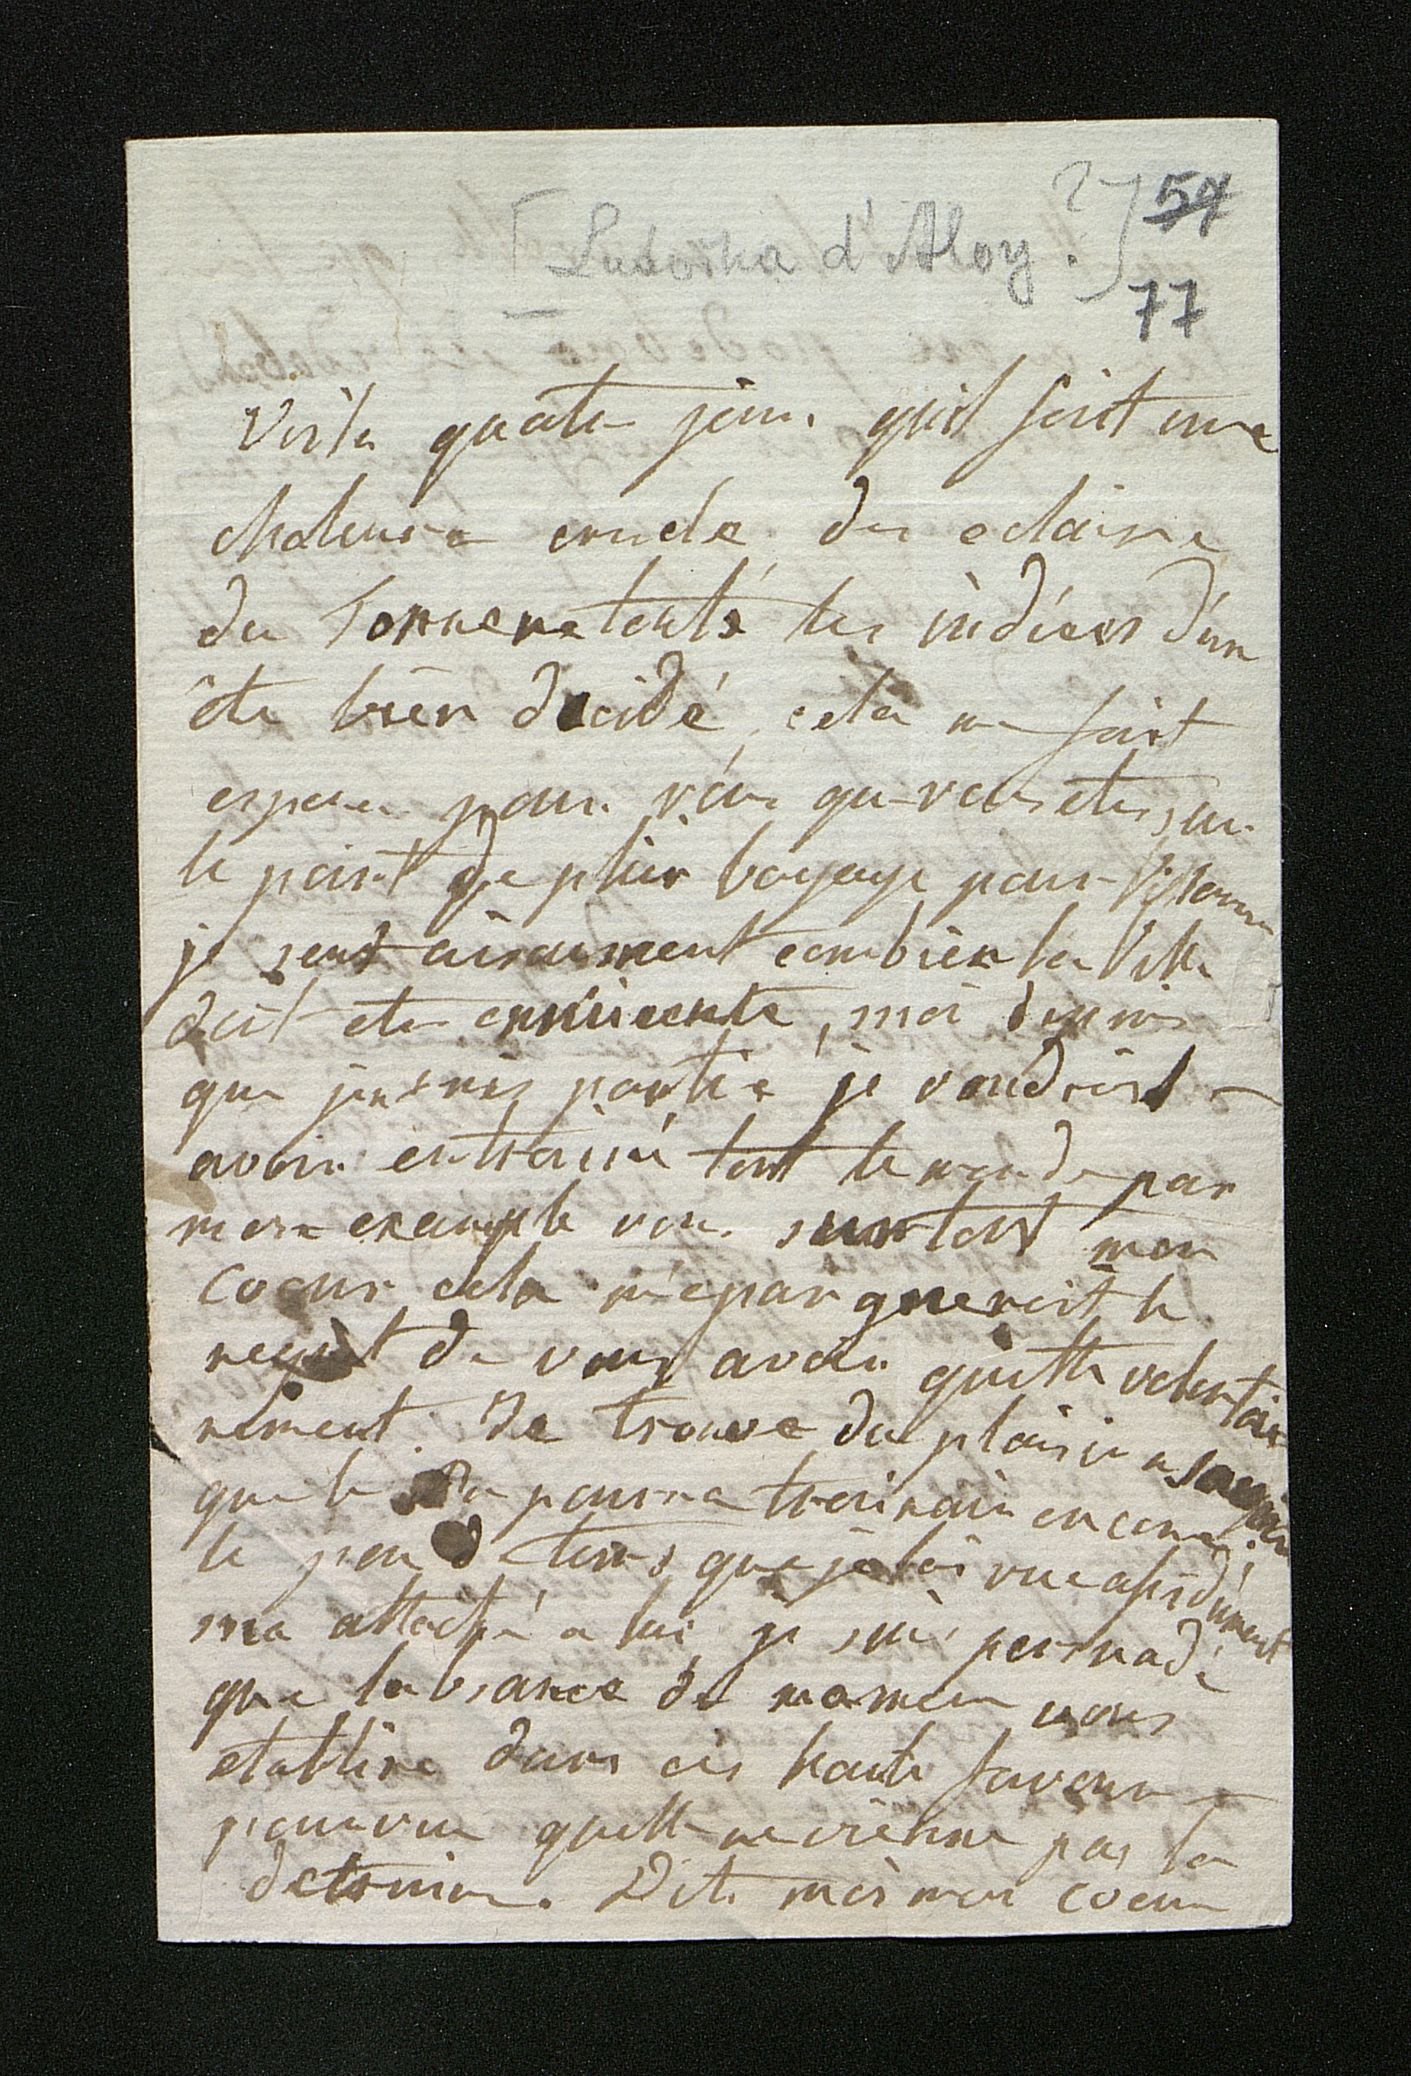 [Luborska d'Aloy?] 57
77
Voila quatre jours quil fait une
chaleure cruele, des eclaire
du Tonnere toute les indices d'un
éte bien decidé, cela me fait
esperer pour vous que vous etes sur
le point de plier bagage pour
je sent aisaiment combien la Ville
doit etre ennuiente, moi depuis
que je suis partie je voudroit
avoir entrainé tout le monde par
mon example vous surtout mon
coeur cela m'epargneroit le
regret de vous avoir quitté volontaire
rement. Je trouve du plaisir a
que le pourra encore,
le peu de tems que je lai vue
ma attaché a lui, je suis persuadé
que la de maman vous
etablira dans ces haute faveur
pourvue quelle ne vienne pas la
detruire. Dite moi mon coeur